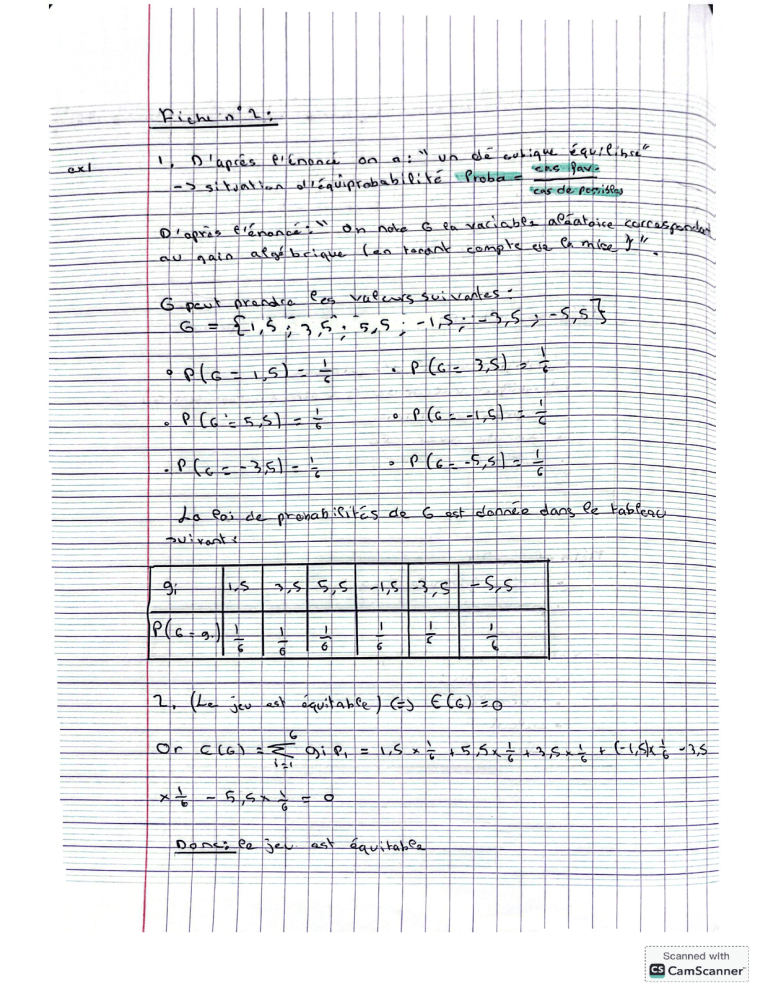 Fiche n°2:
ex1
1. D'après l'énoncé on a: "un dé cubique équilibré"
-> situation d'équiprobabilité Proba = cas fav. / cas de possibles
D'après l'énoncé: "On note G la variable aléatoire correspondant
au gain algébrique (en tenant compte de la mise)".
G peut prendre les valeurs suivantes:
G = {1,5 ; 3,5 ; 5,5 ; -1,5 ; -3,5 ; -5,5}
• P(G = 1,5) = 1/6 • P(G = 3,5) = 1/6
• P(G = 5,5) = 1/6 • P(G = -1,5) = 1/6
• P(G = -3,5) = 1/6 • P(G = -5,5) = 1/6
La loi de probabilités de G est donnée dans le tableau
suivant:
gi 1,5 3,5 5,5 -1,5 -3,5 -5,5
P(G = gi) 1/6 1/6 1/6 1/6 1/6 1/6
2. (Le jeu est équitable) (=) E(G) = 0
Or E(G) = 6 Σ i=1 gi Pi = 1,5 × 1/6 + 5,5 × 1/6 + 3,5 × 1/6 + (-1,5) × 1/6 - 3,5
× 1/6 - 5,5 × 1/6 = 0
Donc: le jeu est équitable
Scanned with
CS CamScanner